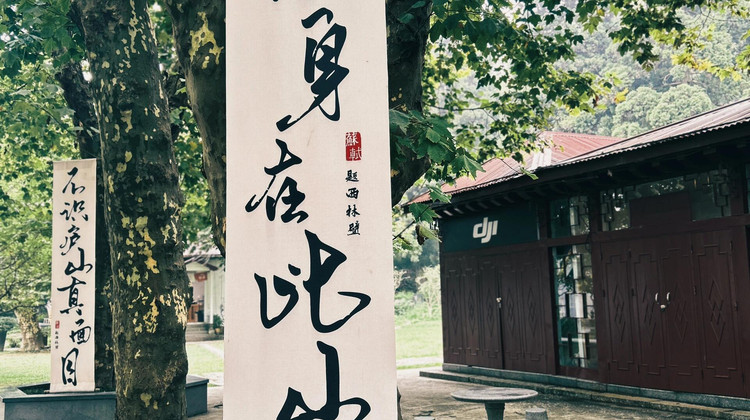 身在此山
蘇軾
題西林壁
不识庐山真面目
dji